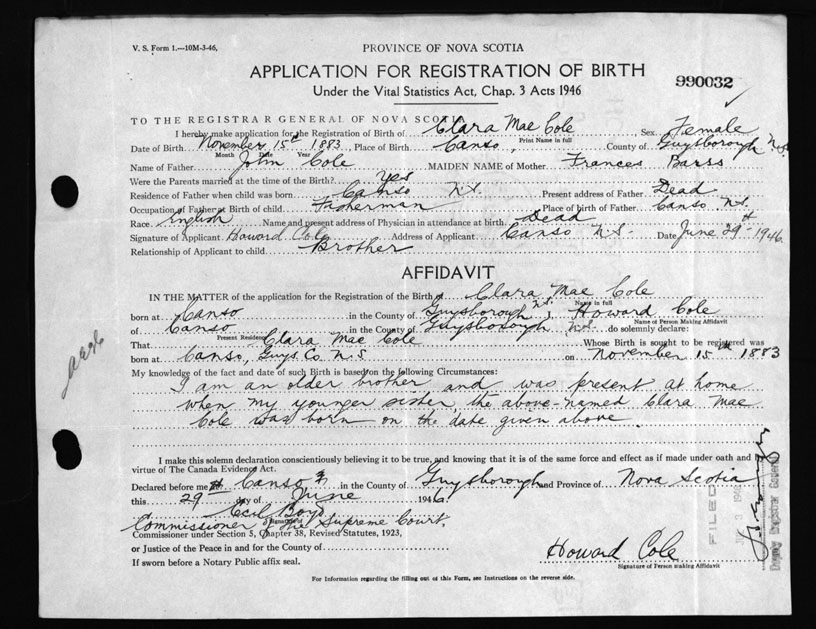 V. S. Form 1.—10M-3-46,
PROVINCE OF NOVA SCOTIA
APPLICATION FOR REGISTRATION OF BIRTH
Under the Vital Statistics Act, Chap. 3 Acts 1946
990032
TO THE REGISTRAR GENERAL OF NOVA SCOTIA
I hereby make application for the Registration of Birth of Clara Mae Cole, Sex Female
Print Name in full
Date of Birth November 15th 1883, Place of Birth Canso, County of Guysborough N.S.
Month Date Year
Name of Father John Cole MAIDEN NAME of Mother Frances Barss
Were the Parents married at the time of the Birth? Yes
Residence of Father when child was born Canso N.S. Present address of Father Dead
Occupation of Father at Birth of child Fisherman Place of birth of Father Canso N.S.
Race English Name and present address of Physician in attendance at birth Dead
Signature of Applicant Howard Cole Address of Applicant Canso N.S. Date June 29th 1946
Relationship of Applicant to child Brother
AFFIDAVIT
IN THE MATTER of the application for the Registration of the Birth of Clara Mae Cole
Name in full
born at Canso in the County of Guysborough N.S. I, Howard Cole
Name of Person Making Affidavit
of Canso in the County of Guysborough N.S. do solemnly declare:
Present Residence
That Clara Mae Cole Whose Birth is sought to be registered was
born at Canso, Guys. Co. N.S. on November 15th 1883
My knowledge of the fact and date of such Birth is based on the following Circumstances:
I am an older brother and was present at home
when my younger sister, the above-named Clara Mae
Cole was born on the date given above.
I make this solemn declaration conscientiously believing it to be true, and knowing that it is of the same force and effect as if made under oath and by
virtue of The Canada Evidence Act.
Declared before me at Canso in the County of Guysborough and Province of Nova Scotia
this 29th day of June 1946
Cecil Boyd
Signature of
Commissioner of the Supreme Court.
Commissioner under Section 5, Chapter 38, Revised Statutes, 1923,
or Justice of the Peace in and for the County of
If sworn before a Notary Public affix seal.
Howard Cole
Signature of Person making Affidavit
For Information regarding the filling out of this Form, see Instructions on the reverse side.
FILED
Deputy Registrar General